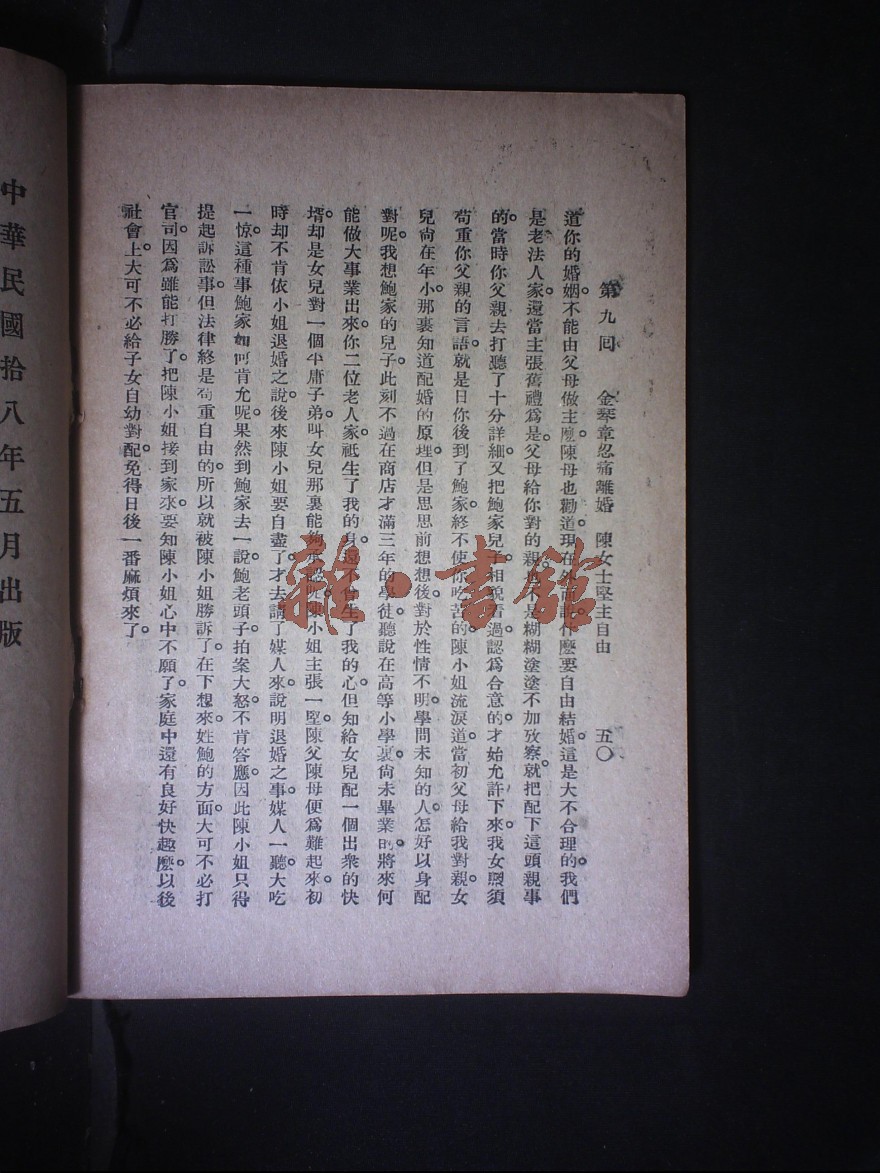 第九回　金琴章忍痛離婚　陳女士堅主自由　五〇
道你的婚姻。不能由父母做主麼。陳母也勸道。現在外面說什麼要自由結婚。這是大不合理的。我們
是老法人家。還當主張舊禮為是。父母給你對的親。也不是糊糊塗塗不加攷察。就把配下這頭親事
的。當時你父親去打聽了十分詳細。又把鮑家兒子。相貌看過。認為合意的。才始允許下來。我女照須
苟重你父親的言語。就是日你後到了鮑家。終不使你吃苦的。陳小姐流淚道。當初父母給我對親。女
兒尙在年小。那裏知道配婚的原理。但是思思前想想後。對於性情不明。學問未知的人。怎好以身配
對呢。我想鮑家的兒子。此刻不過在商店才滿三年的學徒。聽說在高等小學裏。尙未畢業的。將來何
能做大事業出來。你二位老人家。祗生了我的身。這不會生了我的心。但知給女兒配一個出衆的快
壻。却是女兒對一個平庸子弟。叫女兒那裏能夠承認呢。陳小姐主張一堅。陳父陳母便為難起來。初
時却不肯依小姐退婚之說。後來陳小姐要自盡了。才去講了媒人來。說明退婚之事。媒人一聽。大吃
一惊。這種事鮑家如何肯允呢。果然到鮑家去一說。鮑老頭子。拍案大怒。不肯答應。因此陳小姐只得
提起訴訟事。但法律終是苟重自由的。所以就被陳小姐勝訴了。在下想來。姓鮑的方面。大可不必打
官司。因為雖能打勝了。把陳小姐接到家來。要知陳小姐心中不願了。家庭中還有良好快趣麼。以後
社會上。大可不必給子女自幼對配。免得日後一番麻煩來了。
中華民國拾八年五月出版
雜·書館